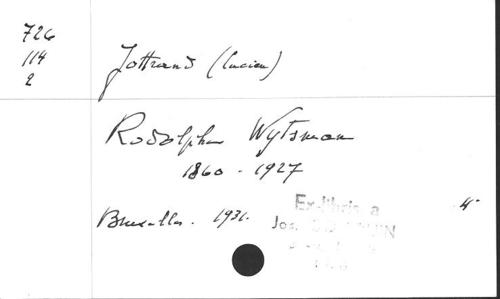 726
114
2
Jottrand (Lucien)
Rodolphe Wytsman
1860 - 1927
Bruxelles. 1931.
4°
Ex-libris a